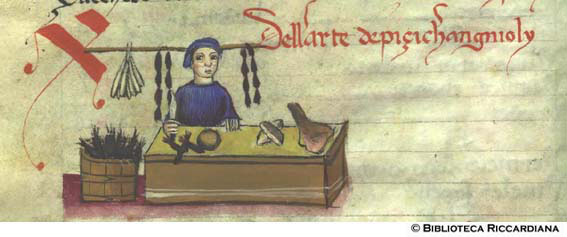 Dell arte depizichangnioly
© BIBLIOTECA RICCARDIANA